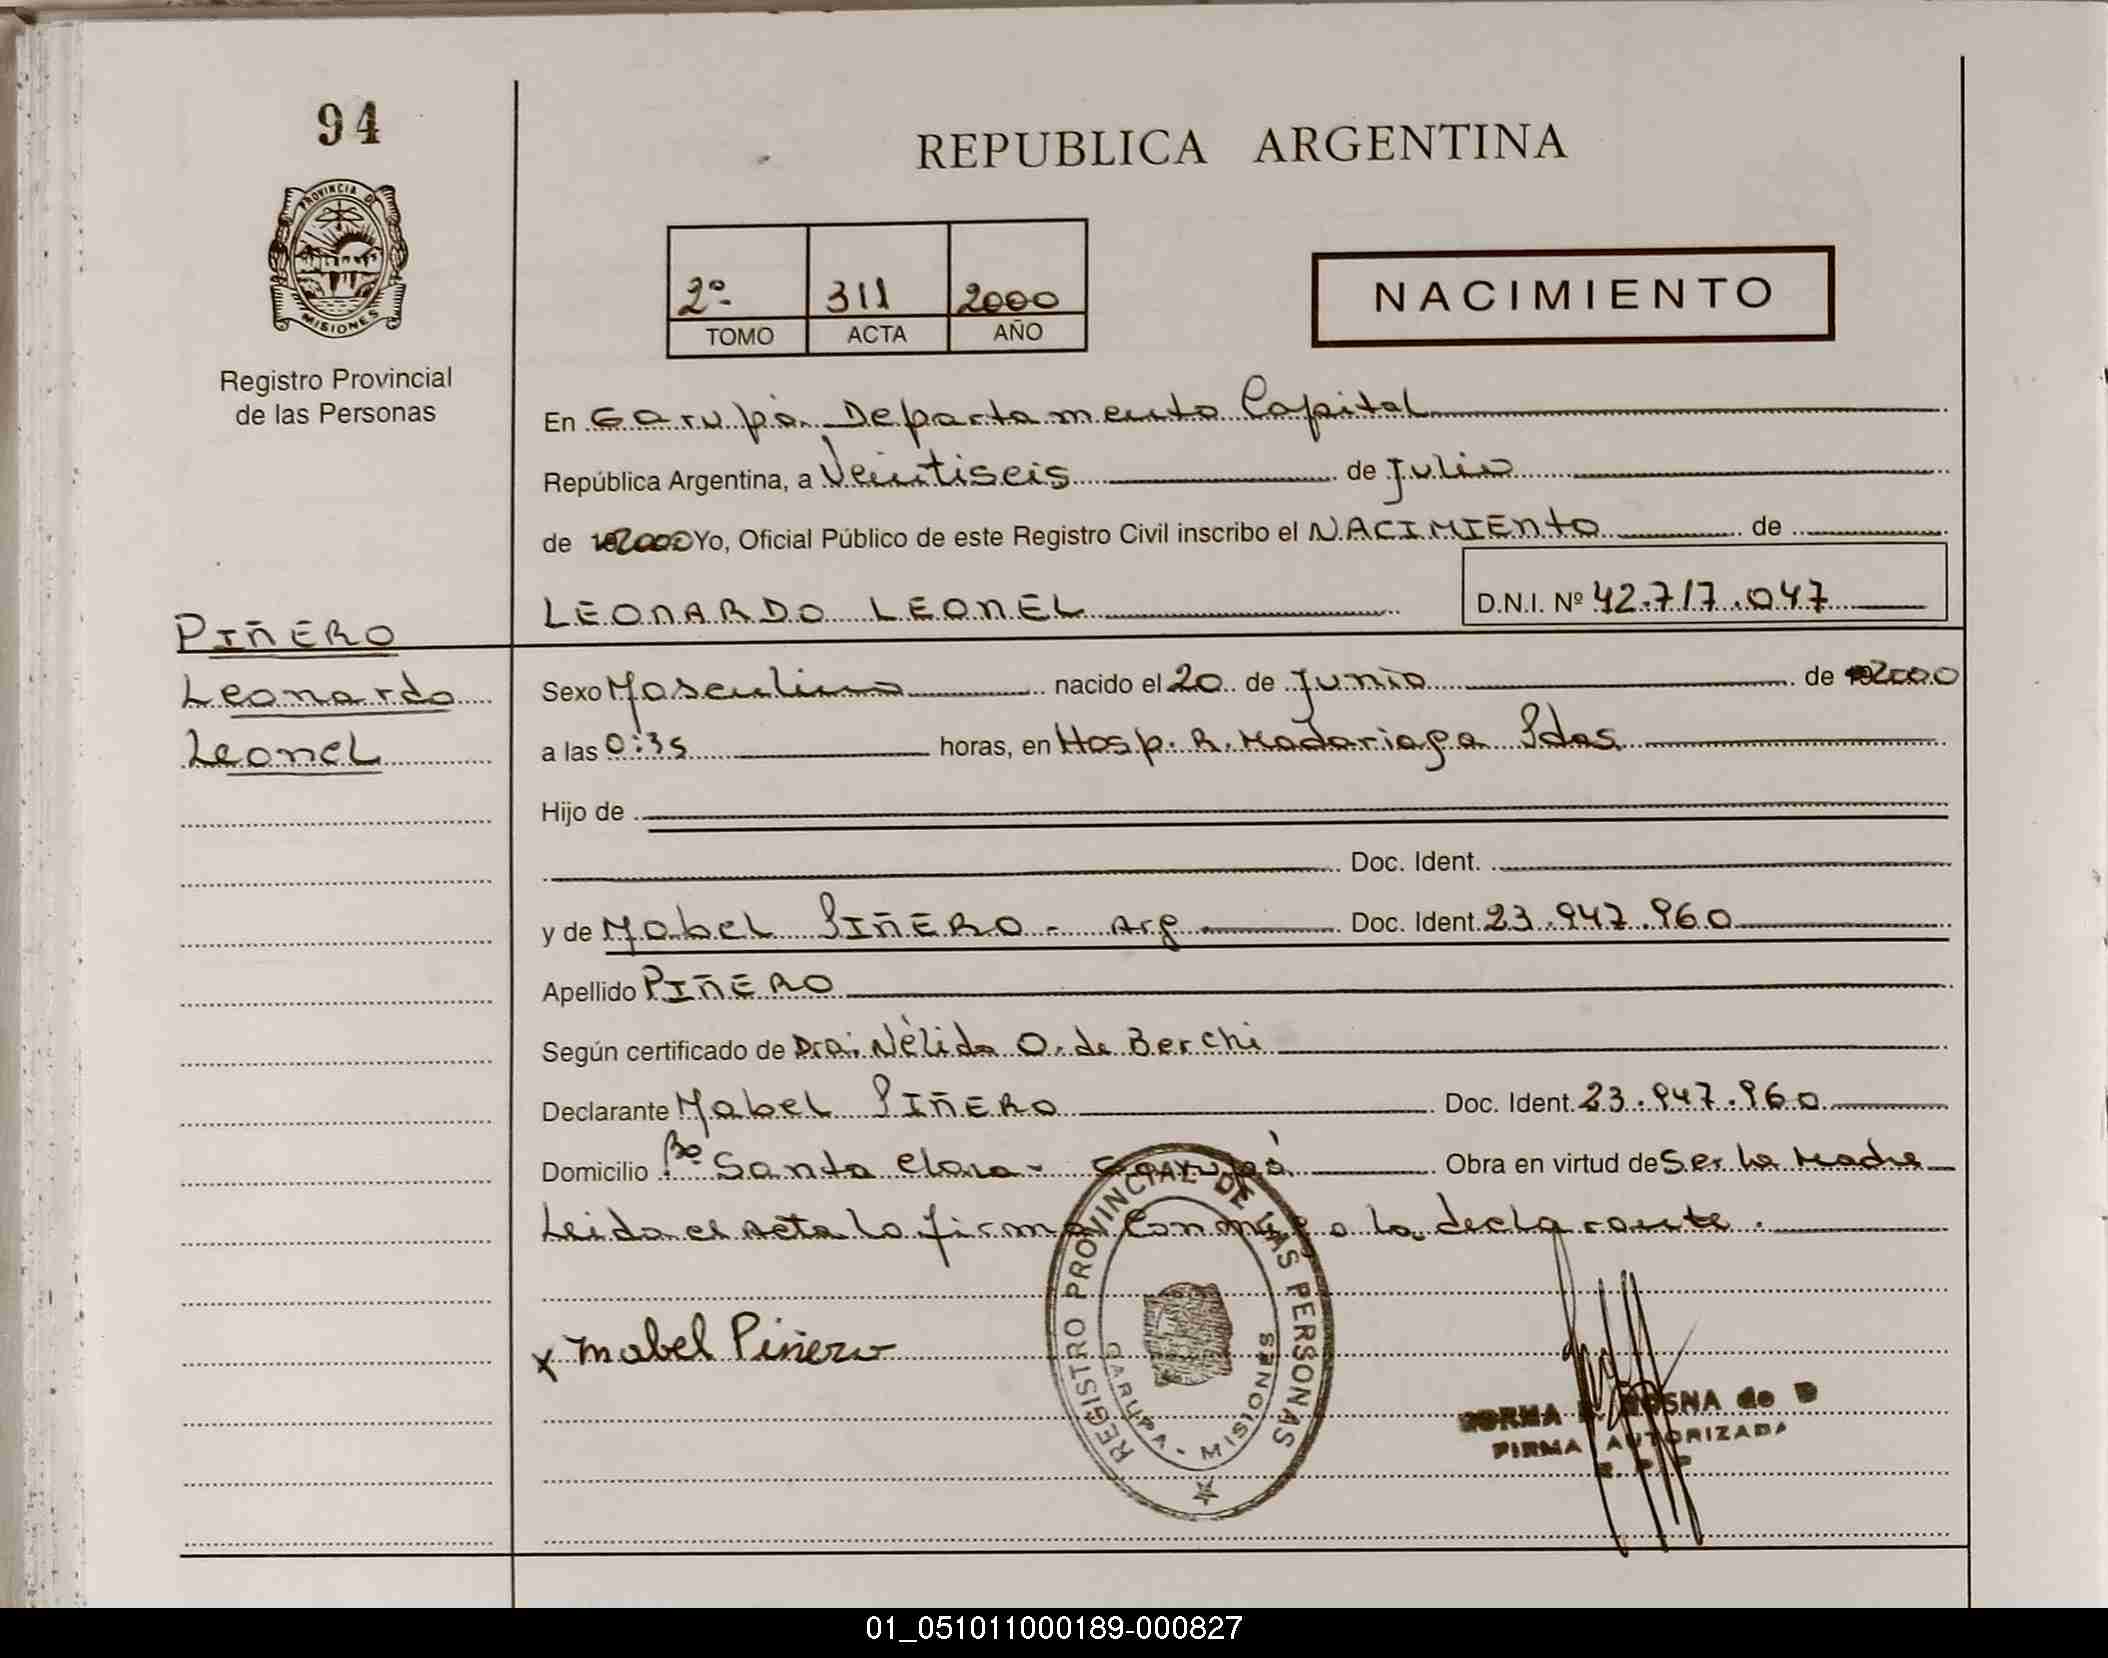 94
REPUBLICA ARGENTINA
PROVINCIA DE
MISIONES
Registro Provincial
de las Personas
2º 311 2000
TOMO ACTA AÑO
NACIMIENTO
En Garupá Departamento Capital
República Argentina, a Veintiseis de Julio
de 2000 Yo, Oficial Público de este Registro Civil inscribo el NACIMIENTO de
LEONARDO LEONEL D.N.I. Nº 42.717.047
PIÑERO
Leonardo
Leonel
Sexo Masculino nacido el 20 de Junio de 2000
a las 0:35 horas, en Hosp. R. Madariaga Pdas
Hijo de
Doc. Ident.
y de Mabel PIÑERO - Arg Doc. Ident. 23.947.960
Apellido PIÑERO
Según certificado de Dra. Nélida O. de Berchi
Declarante Mabel PIÑERO Doc. Ident. 23.947.960
Domicilio Bº Santa Clara - Garupá Obra en virtud de Ser la Madre
Leida el Acta la firma Conmigo la declarante.
x Mabel Piñero
REGISTRO PROVINCIAL DE LAS PERSONAS
GARUPA - MISIONES
de D
FIRMA AUTORIZADA
01_051011000189-000827